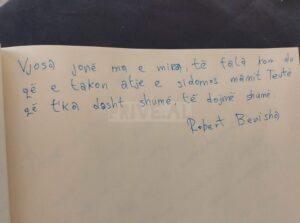 Vjosa jonë ma e mira, të fala kom du
që e takon atje e sidomos mamit Teutë
që t'ka dasht shumë, të dojmë shumë.
Robert Berisha
PRIVE.AL